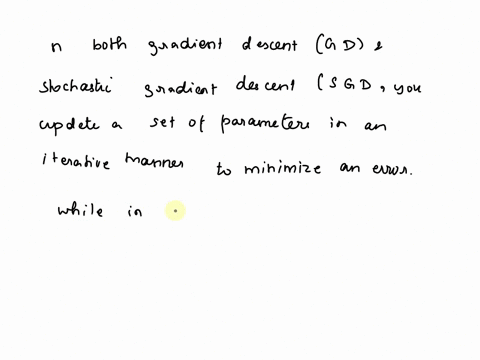 n both gradient descent (GD) &
stochastic gradient descent (SGD, you
update a set of parameters in an
iterative manner to minimize an error.
while in